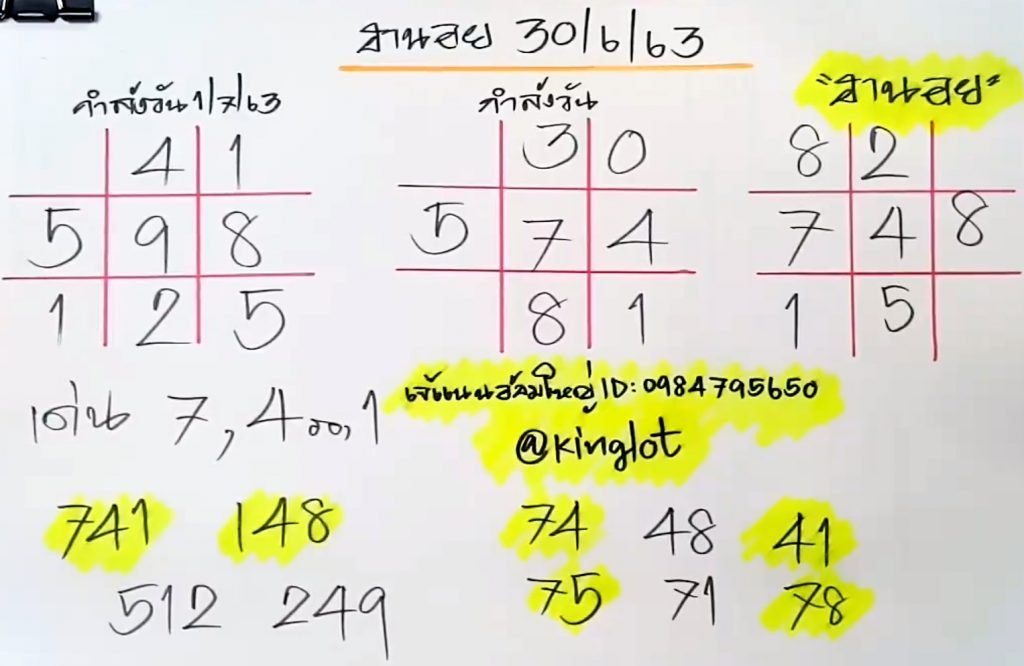 ฮานอย 30/6/63
กำลังวัน 1/7/63
4 1
5 9 8
1 2 5
กำลังวัน
3 0
5 7 4
8 1
"ฮานอย"
8 2
7 4 8
1 5
เจ๊แนนอ้อมใหญ่ ID: 0984795650
@kinglot
เด่น 7, 4 1
741 148
512 249
74 48 41
75 71 78